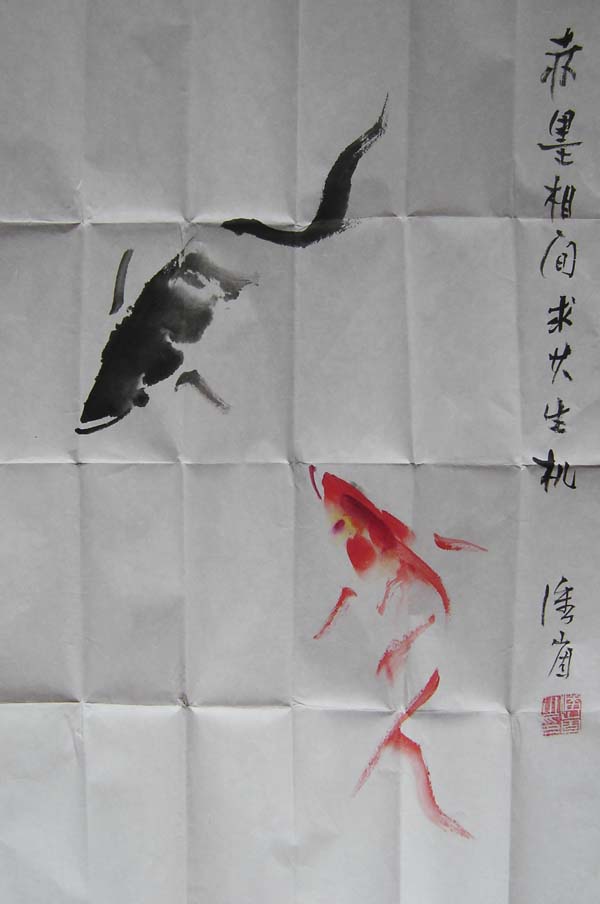 赤墨相间求共生机